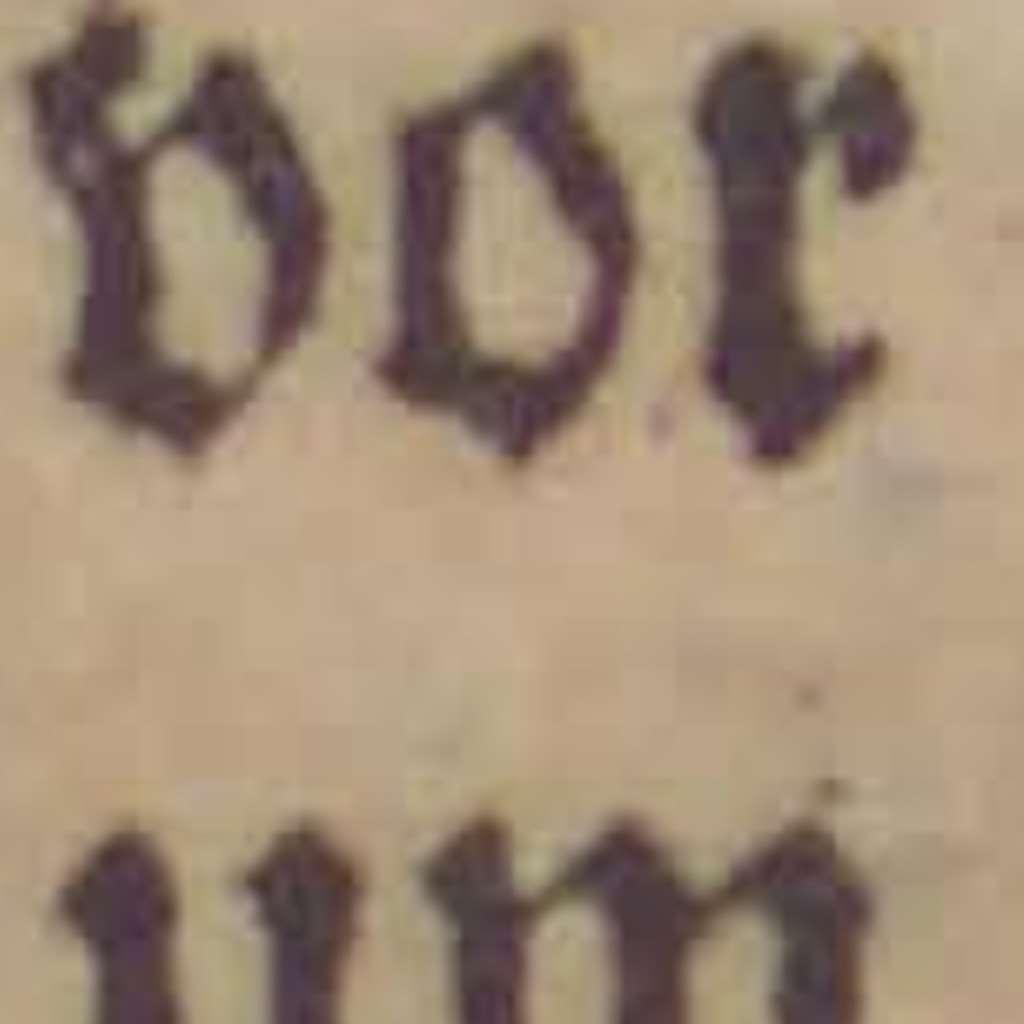 vor
um